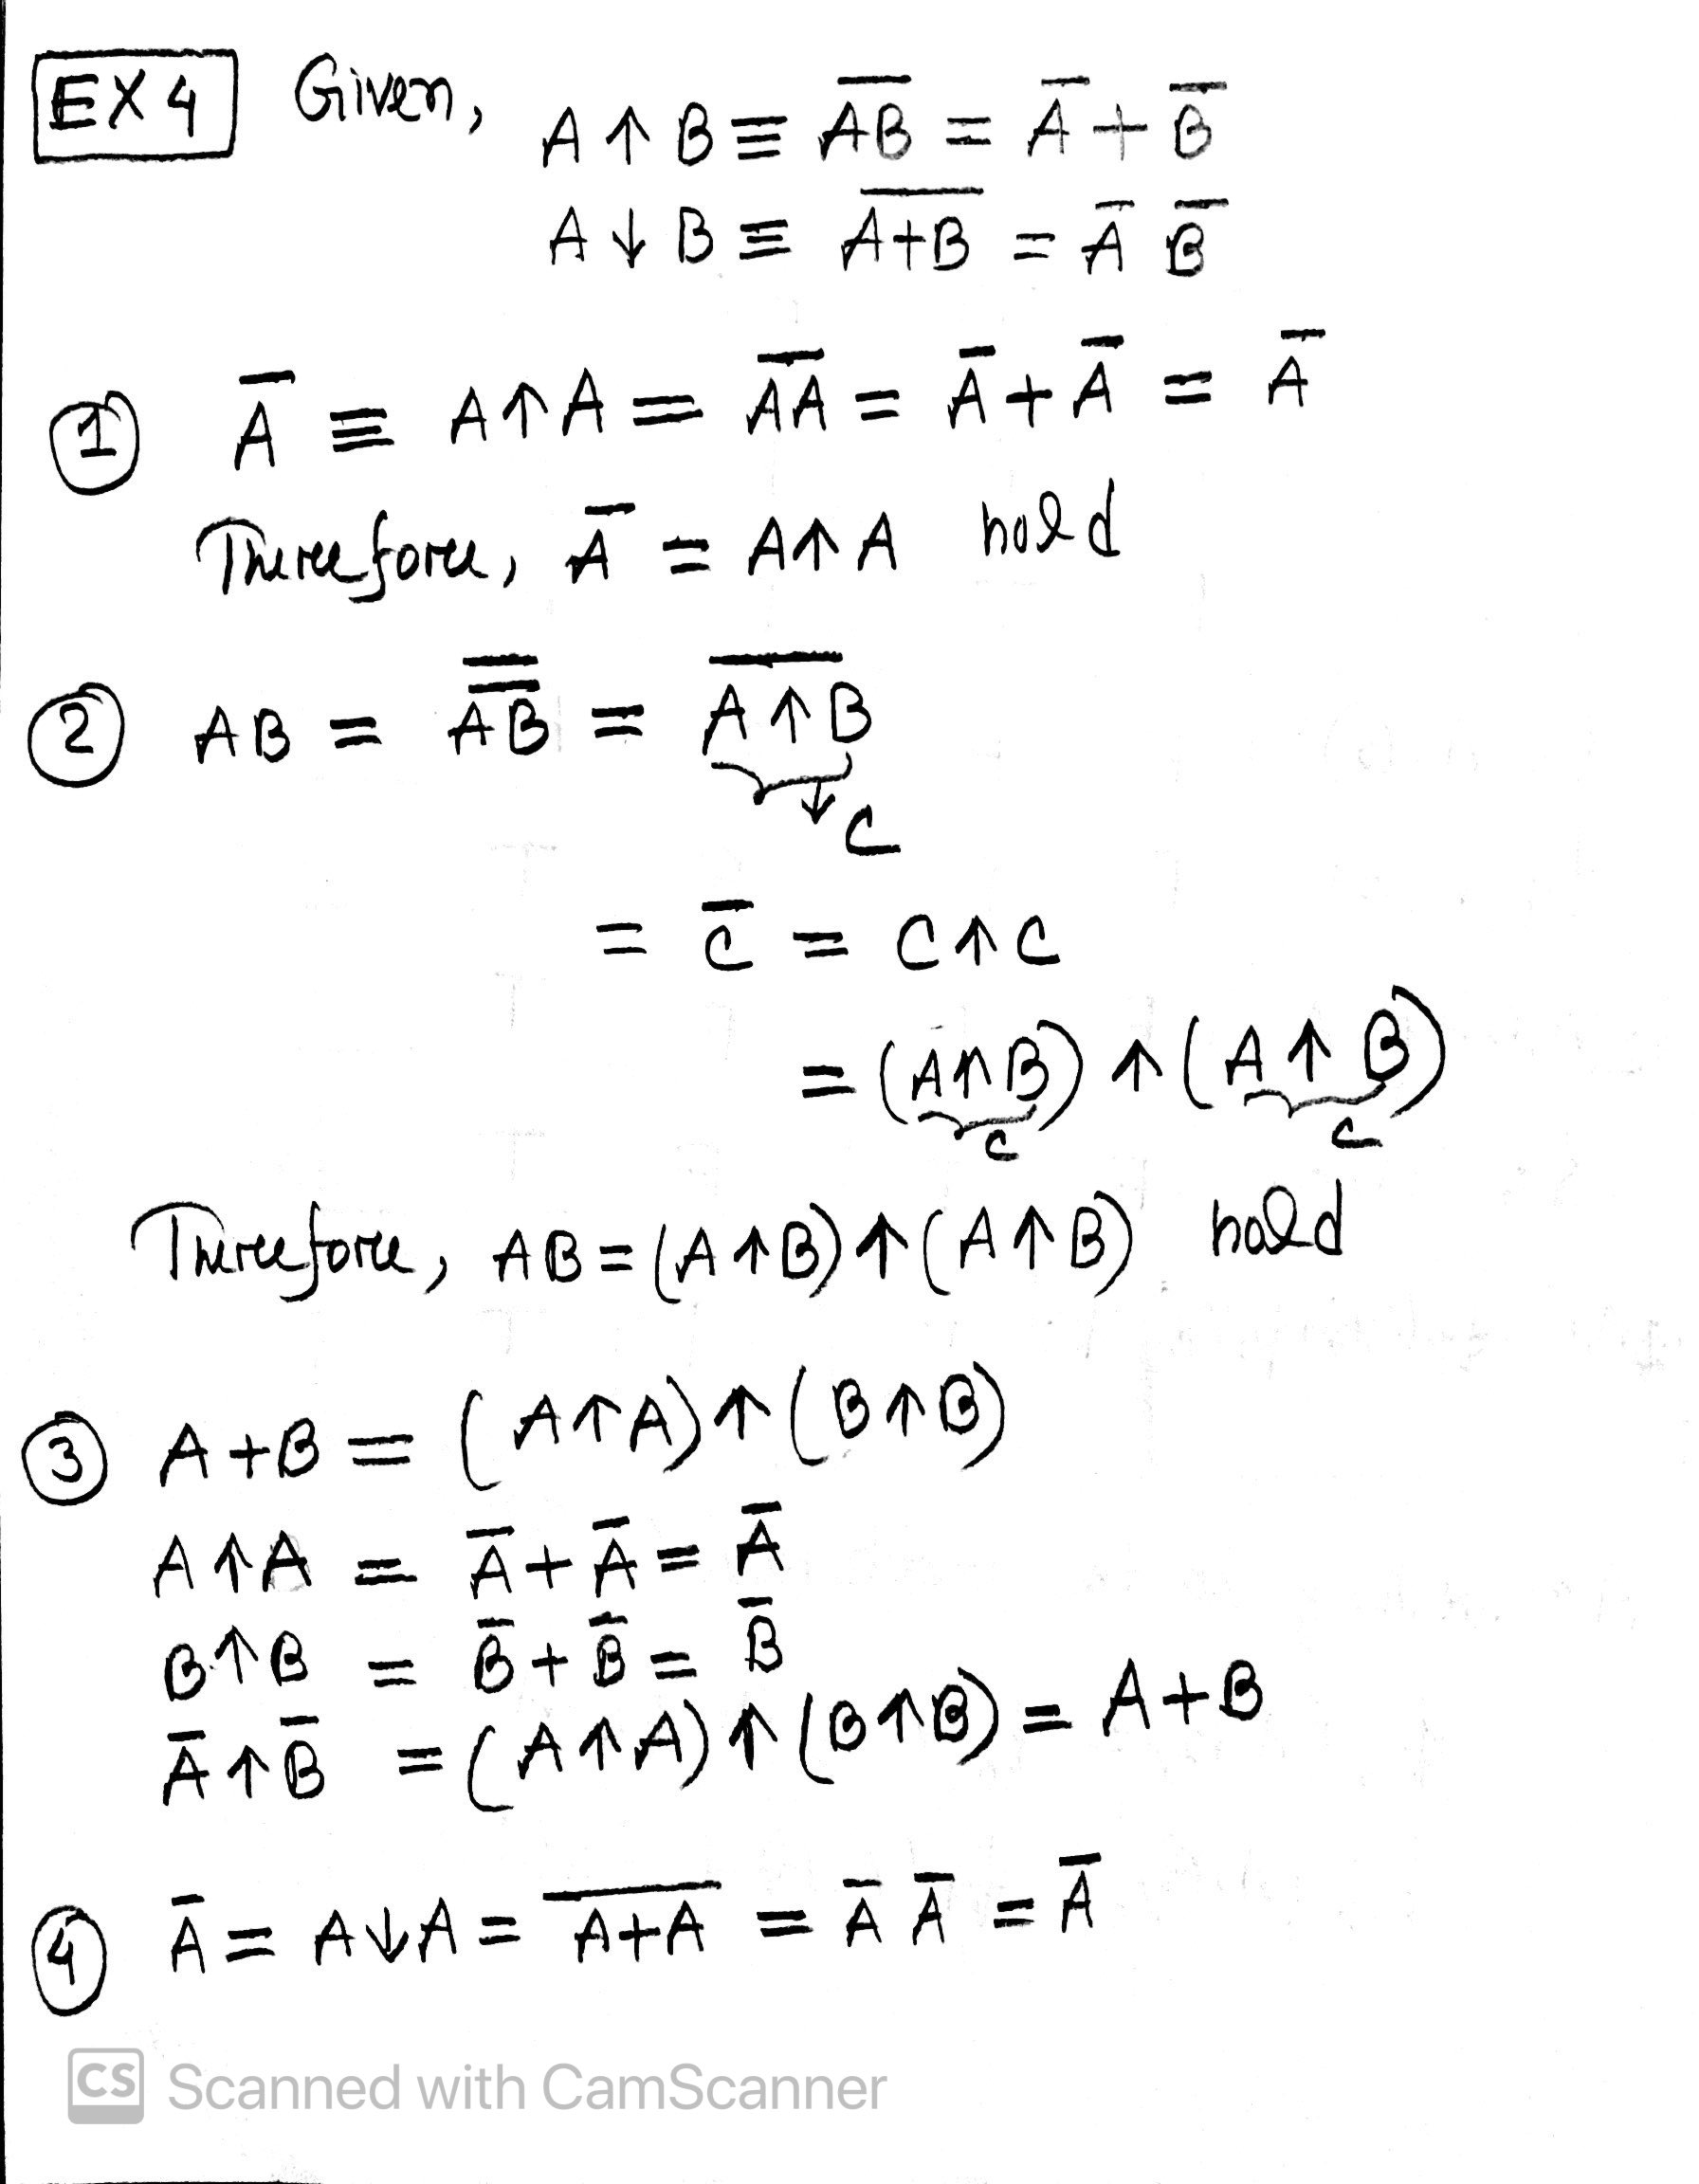 EX 4 Given, A ↑ B ≡ A̅B̅ = A̅ + B̅
A ↓ B ≡ \overline{A+B} = A̅ B̅
① A̅ ≡ A↑A = \overline{AA} = A̅ + A̅ = A̅
Therefore, A̅ = A↑A hold
② AB = \overline{\overline{AB}} = \overline{A↑B}
↓ C
= C̅ = C↑C
= (A↑B) ↑ (A↑B)
C C
Therefore, AB = (A↑B) ↑ (A↑B) hold
③ A+B = (A↑A) ↑ (B↑B)
A↑A = A̅ + A̅ = A̅
B↑B = B̅ + B̅ = B̅
A̅ ↑ B̅ = (A↑A) ↑ (B↑B) = A+B
④ A̅ = A↓A = \overline{A+A} = A̅ A̅ = A̅
CS Scanned with CamScanner